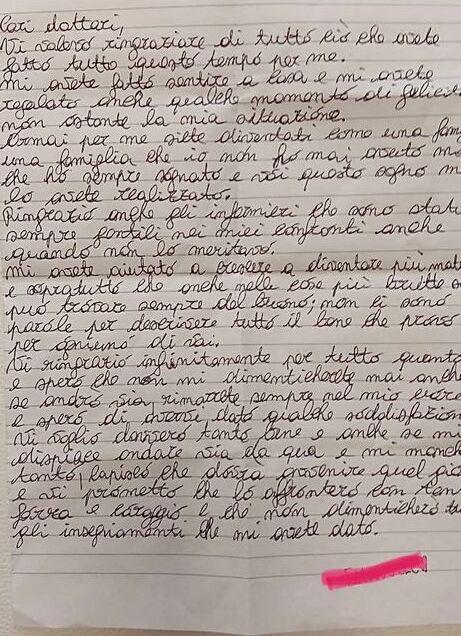 Cari dottori,
Vi volevo ringraziare di tutto ciò che avete
fatto tutto questo tempo per me.
mi avete fatto sentire a casa e mi avete
regalato anche qualche momento di felicit
non ostante la mia situazione.
Ormai per me siete diventati come una fami
una famiglia che io non ho mai avuto m
che ho sempre sognato e voi questo sogno m
lo avete realizzato.
Ringrazio anche gli infermieri che sono stati
sempre gentili nei miei confronti anche
quando non lo meritavo.
mi avete aiutato a crescere a diventare più mat
e sopratutto che anche nelle cose più brutte
può trovare sempre del buono; non ci sono
parole per descrivere tutto il bene che provo
per ogniuno di voi.
Vi ringrazio infinitamente per tutto quanto
e spero che non mi dimenticherete mai anche
se andrò via, rimarrete sempre nel mio cuore
e spero di avervi dato qualche soddisfazion
Vi voglio davvero tanto bene e anche se mi
dispiace andare via da qua e mi manch
tanto, capisco che dovrà avvenire quel gio
e vi prometto che lo affronterò con tan
forza e coraggio e che non dimenticherò tu
gli insegnamenti che mi avete dato.